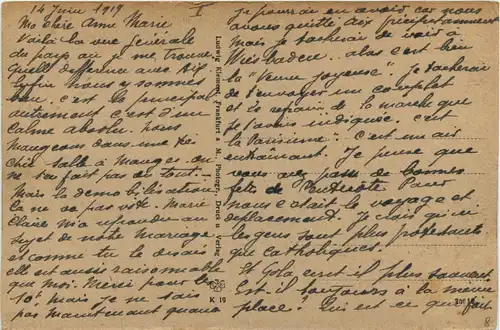 14 Juin 1919
I
Ma chère Anne Marie
Voilà la vue générale
du pays où je me trouve
Quelle différence avec
Enfin nous sommes
bien. c'est le principal
autrement c'est d'un
calme absolu. Nous
mangeons dans une
salle à manger on
ne s'en fait pas du tout.
Mais la démobilisation
ça ne va pas vite. Marie
Claire m'a répondu au
sujet de notre mariage
et comme tu le disais
elle est aussi raisonnable
que moi. Merci pour la
mais je ne sais
pas maintenant quand
Ludwig Klement, Frankfurt a. M., Photogr. Druck u. Verlag
K 19
je pourrai en avoir car nous
avons quitté assez précipitamment
Mais je tacherai de voir à
Wiesbaden. alors c'est bien
la "Veuve Joyeuse". Je tacherai
de t'envoyer un complet
et le refrain de la marche que
je t'avais indiquée. c'est
la "Parisienne" c'est un air
entrainant. Je pense que
vous avez passé de bonnes
fêtes de Pentecôte Pour
nous c'était le voyage et
déplacement. Je crois qu'ici
les gens sont plus protestants
que catholiques.
Et est il plus
Est il toujours à la même
place? Qu'est ce que fait